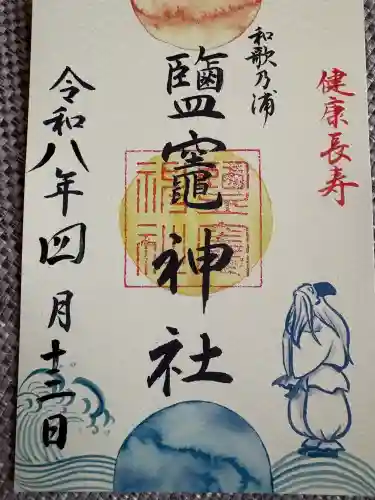 健康長寿
和歌乃浦
鹽竈神社
令和八年四月十二日